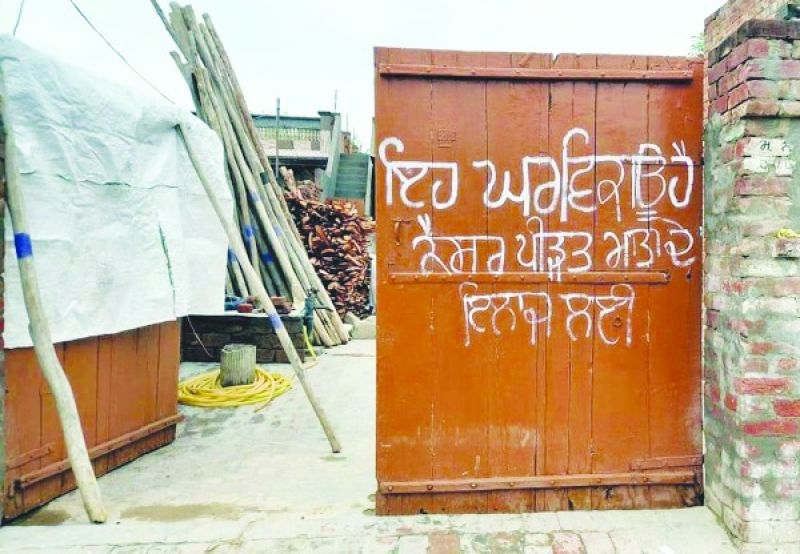 ਇਹ ਘਰ ਵਿਕਾਊ ਹੈ
ਕੈਂਸਰ ਪੀੜਤ ਮਾਤਾ ਦੇ
ਇਲਾਜ ਲਈ